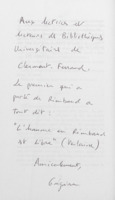 Aux lectrices et
lecteurs de Bibliothèque
Universitaire de
Clermont-Ferrand.
La première qui a
parlé de Rimbaud a
tout dit :
"L'homme en Rimbaud
est libre" (Verlaine)
Amicalement,